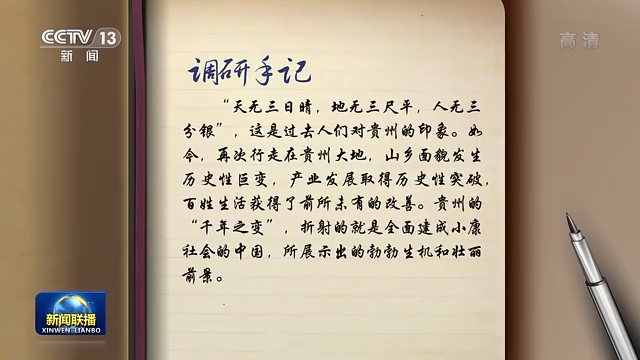 CCTV 13
新闻
高清
调研手记
“天无三日晴，地无三尺平，人无三
分银”，这是过去人们对贵州的印象。如
今，再次行走在贵州大地，山乡面貌发生
历史性巨变，产业发展取得历史性突破，
百姓生活获得了前所未有的改善。贵州的
“千年之变”，折射的就是全面建成小康
社会的中国，所展示出的勃勃生机和壮丽
前景。
新闻联播
XINWEN-LIANBO